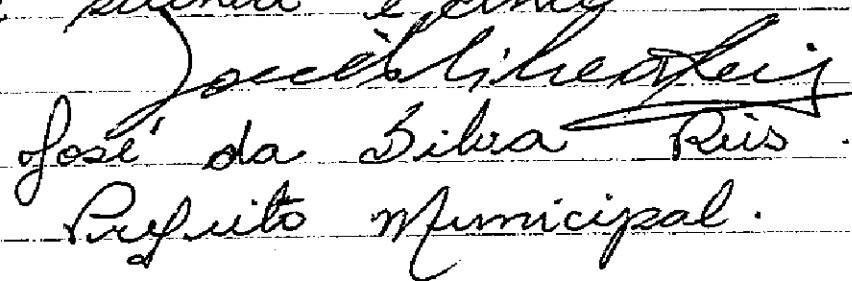 e cinco
José da Silva Reis.
Prefeito Municipal.